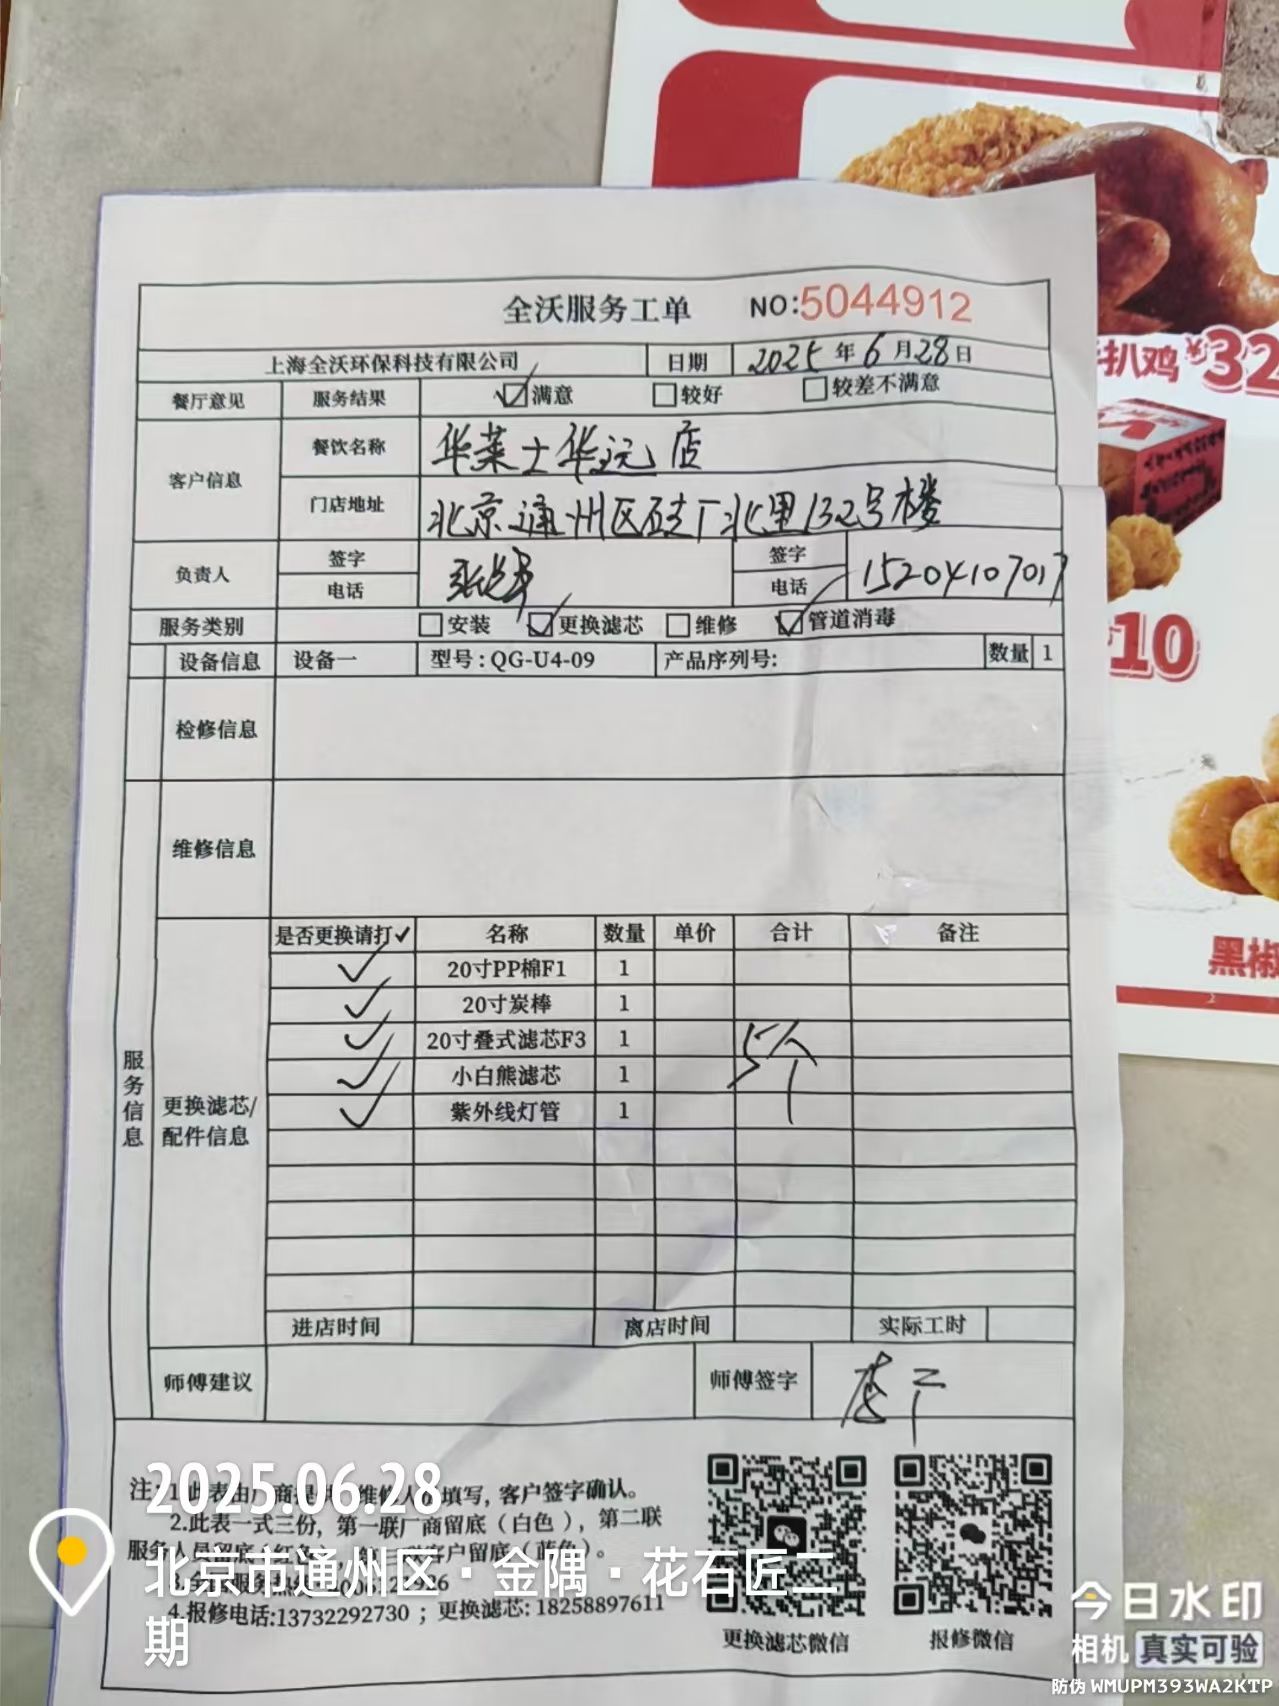 全沃服务工单 NO:5044912
上海全沃环保科技有限公司 日期 2025年6月28日
餐厅意见 服务结果 满意 较好 较差不满意
客户信息 餐饮名称 华莱士华远店
门店地址 北京通州区砖厂北里132号楼
负责人 签字 签字
电话 电话 15204107017
服务类别 安装 更换滤芯 维修 管道消毒
设备信息 设备一 型号:QG-U4-09 产品序列号: 数量 1
检修信息
维修信息
服务信息
更换滤芯/配件信息
是否更换请打✓ 名称 数量 单价 合计 备注
✓ 20寸PP棉F1 1
✓ 20寸炭棒 1
✓ 20寸叠式滤芯F3 1 5个
✓ 小白熊滤芯 1
✓ 紫外线灯管 1
进店时间 离店时间 实际工时
师傅建议 师傅签字
注:1.此表由 填写,客户签字确认。
2.此表一式三份,第一联厂商留底(白色),第二联
服务人员留底 客户留底(蓝色)。
4.报修电话:13732292730 ; 更换滤芯: 18258897611
更换滤芯微信 报修微信
2025.06.28
北京市通州区·金隅·花石匠二
期
今日水印
相机 真实可验
防伪 WMUPM393WA2KTP
扒鸡 ¥32
10
黑椒